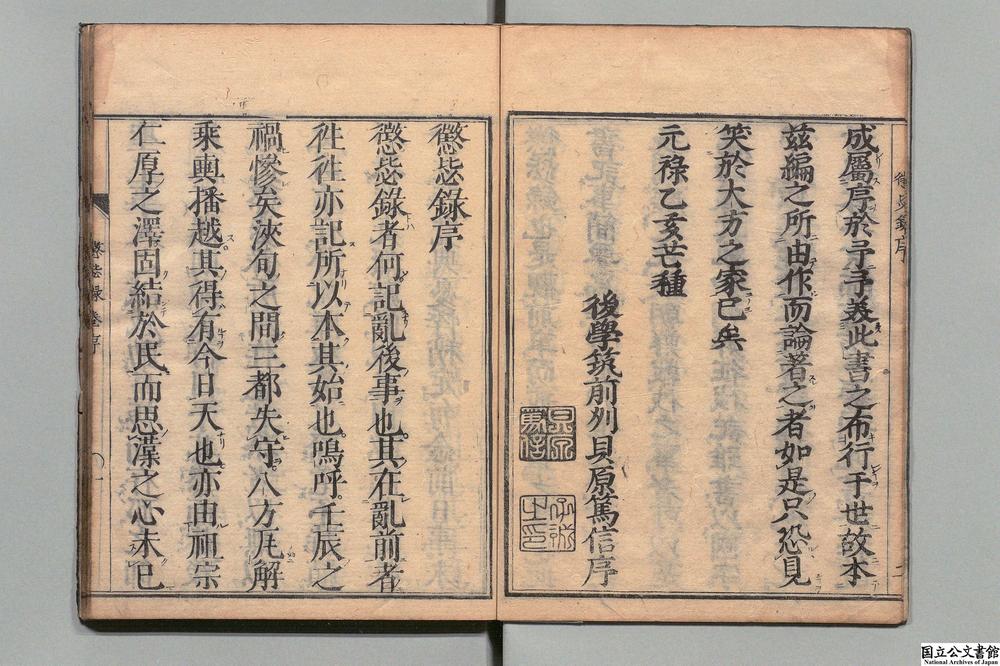 成屬序於予予義此書之布行于世故本
茲編之所由作而論著之者如是只恐見
笑於大方之家已矣
元祿乙亥芒種
後學筑前州貝原篤信序
懲毖錄序
懲毖錄者何記亂後事也其在亂前者
徃徃亦記所以本其始也嗚呼壬辰之
禍慘矣浹旬之間三都失守八方瓦解
乘輿播越其得有今日天也亦由祖宗
仁厚之澤固結於民而思漢之心未已
懲毖錄卷序
国立公文書館
National Archives of Japan